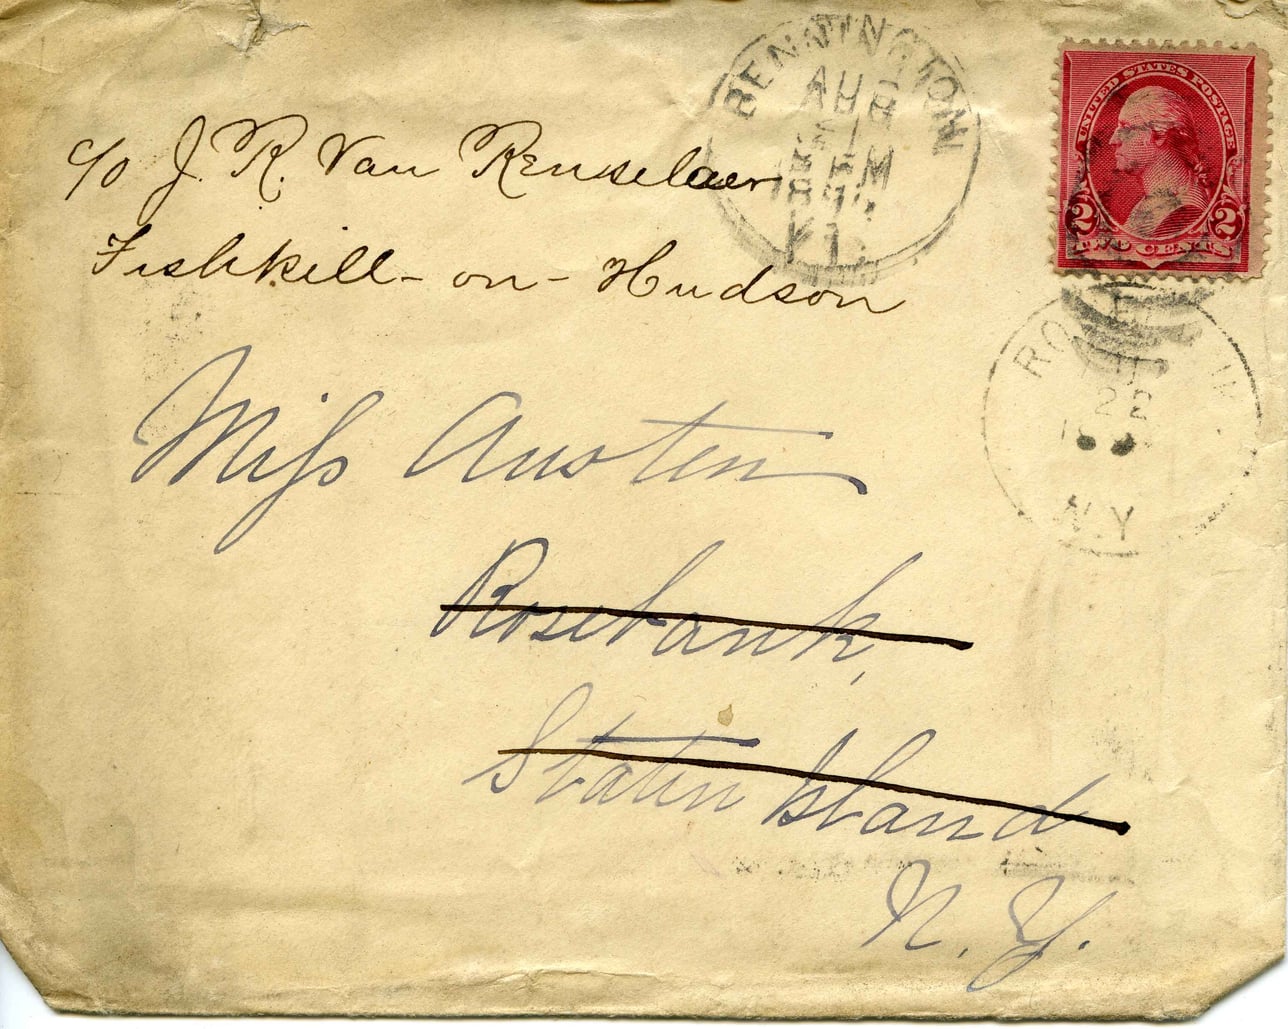 BENNINGTON
AUG
21
PM
VT.
UNITED STATES POSTAGE
2 2
TWO CENTS
c/o J. R. Van Rensselaer
Fishkill-on-Hudson
22
N.Y
Miss Austen
Rosebank,
Staten Island
N. Y.